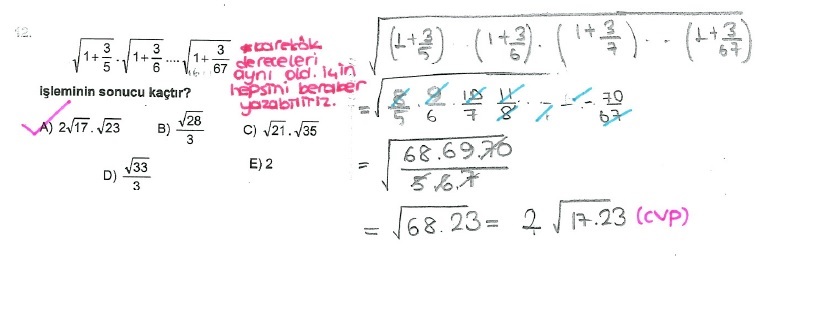 12.
√(1+3/5) . √(1+3/6) .... √(1+3/67)
işleminin sonucu kaçtır?
A) 2√17 . √23 B) √28/3 C) √21 . √35
D) √33/3 E) 2
*karekök
dereceleri
aynı old. için
hepsini beraber
yazabiliriz.
√((1+3/5) . . (1+3/6) . (1+3/7) . . (1+3/67))
= √(8/5 . 9/6 . 10/7 . 11/8 . . . . 70/67)
= √(68.69.70/5.6.7)
= √68.23 = 2 √17.23 (CVP)